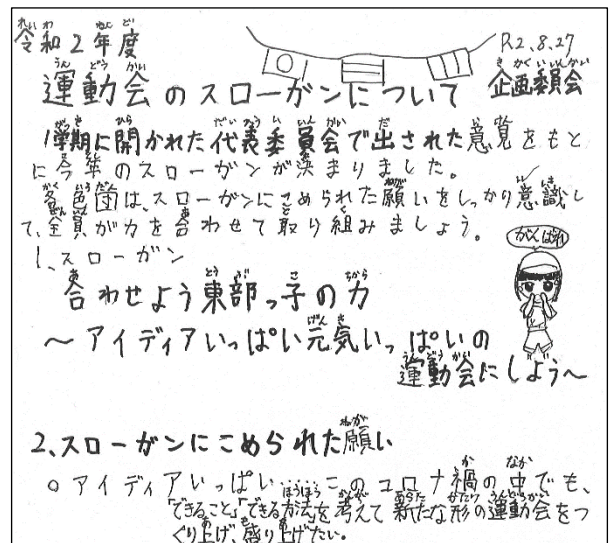 令和2年度
R2.8.27
運動会のスローガンについて
企画委員会
1学期に開かれた代表委員会で出された意見をもと
に今年のスローガンが決まりました。
各色団は、スローガンにこめられた願いをしっかり意識し
て、全員が力を合わせて取り組みましょう。
がんばれ
1、スローガン
合わせよう東部っ子の力
～アイディアいっぱい元気いっぱいの
運動会にしよう～
2、スローガンにこめられた願い
○アイディアいっぱい……このコロナ禍の中でも、
「できること」「できる方法」を考えて新たな形の運動会をつ
くり上げ、盛り上げたい。